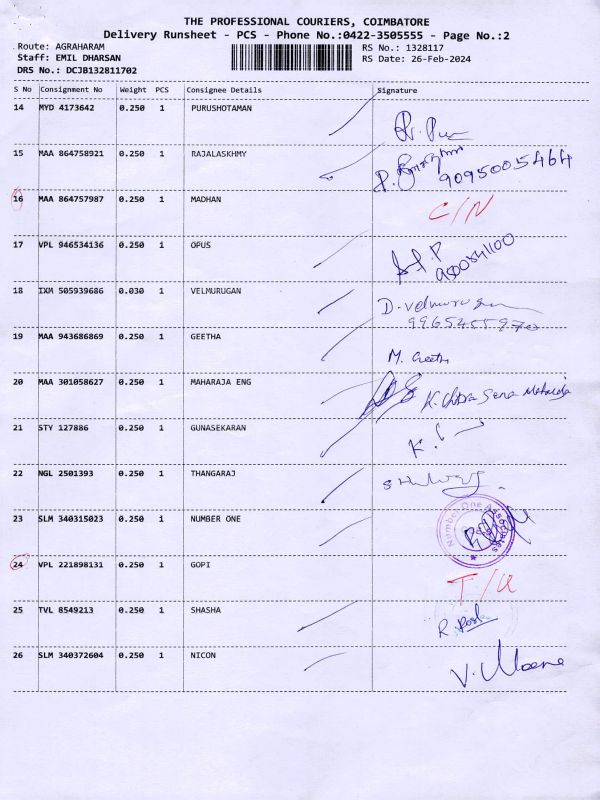 THE PROFESSIONAL COURIERS, COIMBATORE
Delivery Runsheet - PCS - Phone No.:0422-3505555 - Page No.:2
Route: AGRAHARAM RS No.: 1328117
Staff: EMIL DHARSAN RS Date: 26-Feb-2024
DRS No.: DCJB132811702
S No Consignment No Weight PCS Consignee Details Signature
14 MYD 4173642 0.250 1 PURUSHOTAMAN
15 MAA 864758921 0.250 1 RAJALASKHMY
9095005464
16 MAA 864757987 0.250 1 MADHAN C/N
17 VPL 946534136 0.250 1 OPUS
18 IXM 505939686 0.030 1 VELMURUGAN D. Velmurugan
9965455970
19 MAA 943686869 0.250 1 GEETHA M. Geetha
20 MAA 301058627 0.250 1 MAHARAJA ENG
21 STY 127886 0.250 1 GUNASEKARAN K.
22 NGL 2501393 0.250 1 THANGARAJ
23 SLM 340315023 0.250 1 NUMBER ONE Number One Associates
24 VPL 221898131 0.250 1 GOPI T/U
25 TVL 8549213 0.250 1 SHASHA
26 SLM 340372604 0.250 1 NICON